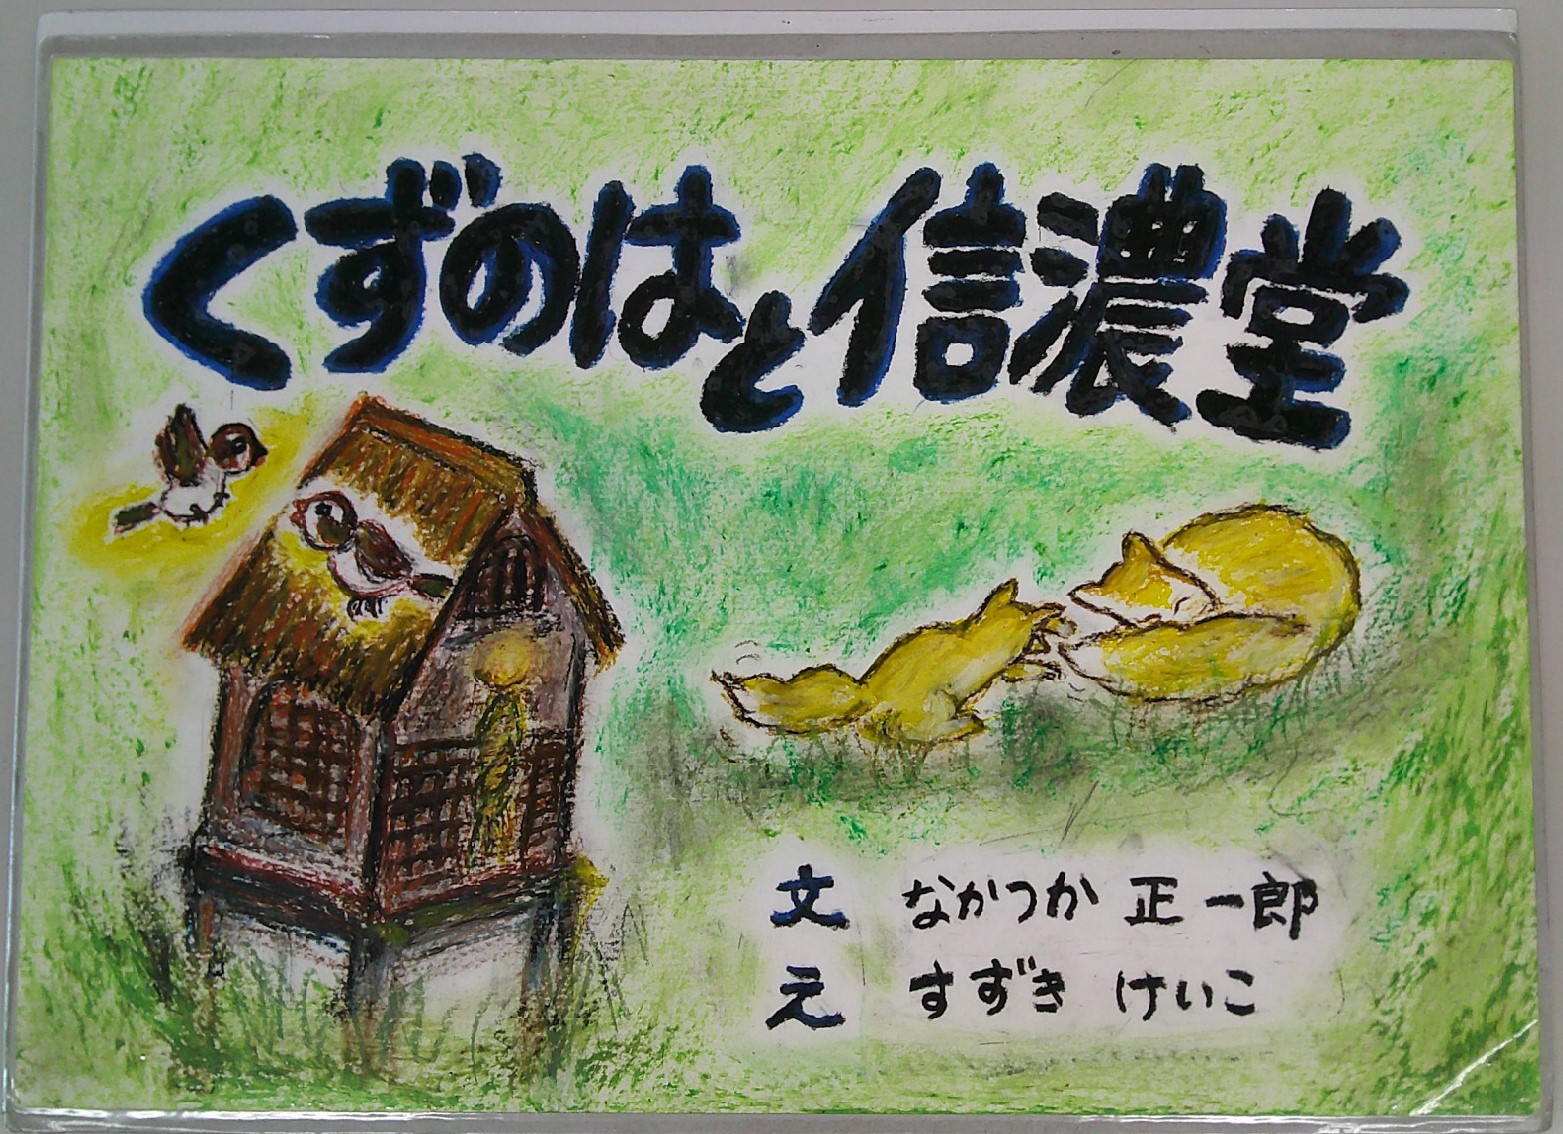 くずのはと信濃堂
文 なかつか 正一郎
え すずき けいこ